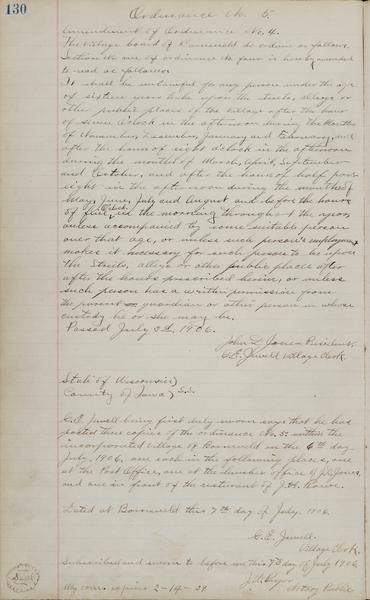 130
Ordinance No. 5.
Amendment of Ordinance No. 4.
The Village board of Barneveld do ordain as follows.
Section one of ordinance No four is hereby amended
to read as follows:
It shall be unlawful for any person under the age
of sixteen years to be upon the streets, alleys or
other public places of the village after the hour
of seven o'clock in the afternoon during the months
of November, December, January and February, and
after the hour of eight o'clock in the afternoon
during the months of March, April, September
and October, and after the hour of half past
eight in the afternoon during the months of
May, June, July and August and before the hour
of five o'clock in the morning throughout the year,
unless accompanied by some suitable person
over that age, or unless such person's employment
makes it necessary for such person to be upon
the streets, alleys or other public places after
after the hours prescribed herein, or unless
such person has a written permission from
the parent or guardian or other person in whose
custody he or she may be.
Passed July 3d, 1906.
John L Jones President
C.E. Jewell Village Clerk
State of Wisconsin)
County of Iowa) S.S.
C.E. Jewell being first duly sworn says that he has
posted three copies of the ordinance No. 5. within the
incorporated village of Barneveld on the 6th day
July, 1906, one each in the following places, one
at the Post Office, one at the lumber office of Jones,
and one in front of the restaurant of J.H.
Dated at Barneveld this 7th day of July. 1906.
C.E. Jewell.
Village Clerk.
Subscribed and sworn to before me this 7th day of July 1906
Notary Public
My com. expires 2-14-09